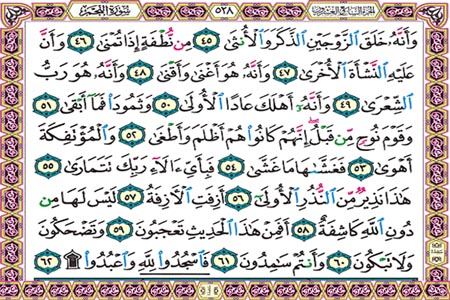 الجزء السابع والعشرون ٥٢٨ سورة النجم
وَأَنَّهُۥ خَلَقَ ٱلزَّوْجَيْنِ ٱلذَّكَرَ وَٱلْأُنثَىٰ ٤٥ مِن نُّطْفَةٍ إِذَا تُمْنَىٰ ٤٦ وَأَنَّ
عَلَيْهِ ٱلنَّشْأَةَ ٱلْأُخْرَىٰ ٤٧ وَأَنَّهُۥ هُوَ أَغْنَىٰ وَأَقْنَىٰ ٤٨ وَأَنَّهُۥ هُوَ رَبُّ
ٱلشِّعْرَىٰ ٤٩ وَأَنَّهُۥٓ أَهْلَكَ عَادًا ٱلْأُولَىٰ ٥٠ وَثَمُودَا۟ فَمَآ أَبْقَىٰ ٥١
وَقَوْمَ نُوحٍ مِّن قَبْلُ ۖ إِنَّهُمْ كَانُوا۟ هُمْ أَظْلَمَ وَأَطْغَىٰ ٥٢ وَٱلْمُؤْتَفِكَةَ
أَهْوَىٰ ٥٣ فَغَشَّىٰهَا مَا غَشَّىٰ ٥٤ فَبِأَىِّ ءَالَآءِ رَبِّكَ تَتَمَارَىٰ ٥٥
هَٰذَا نَذِيرٌ مِّنَ ٱلنُّذُرِ ٱلْأُولَىٰٓ ٥٦ أَزِفَتِ ٱلْءَازِفَةُ ٥٧ لَيْسَ لَهَا مِن
دُونِ ٱللَّهِ كَاشِفَةٌ ٥٨ أَفَمِنْ هَٰذَا ٱلْحَدِيثِ تَعْجَبُونَ ٥٩ وَتَضْحَكُونَ
وَلَا تَبْكُونَ ٦٠ وَأَنتُمْ سَٰمِدُونَ ٦١ فَٱسْجُدُوا۟ لِلَّهِ وَٱعْبُدُوا۟ ۩ ٦٢